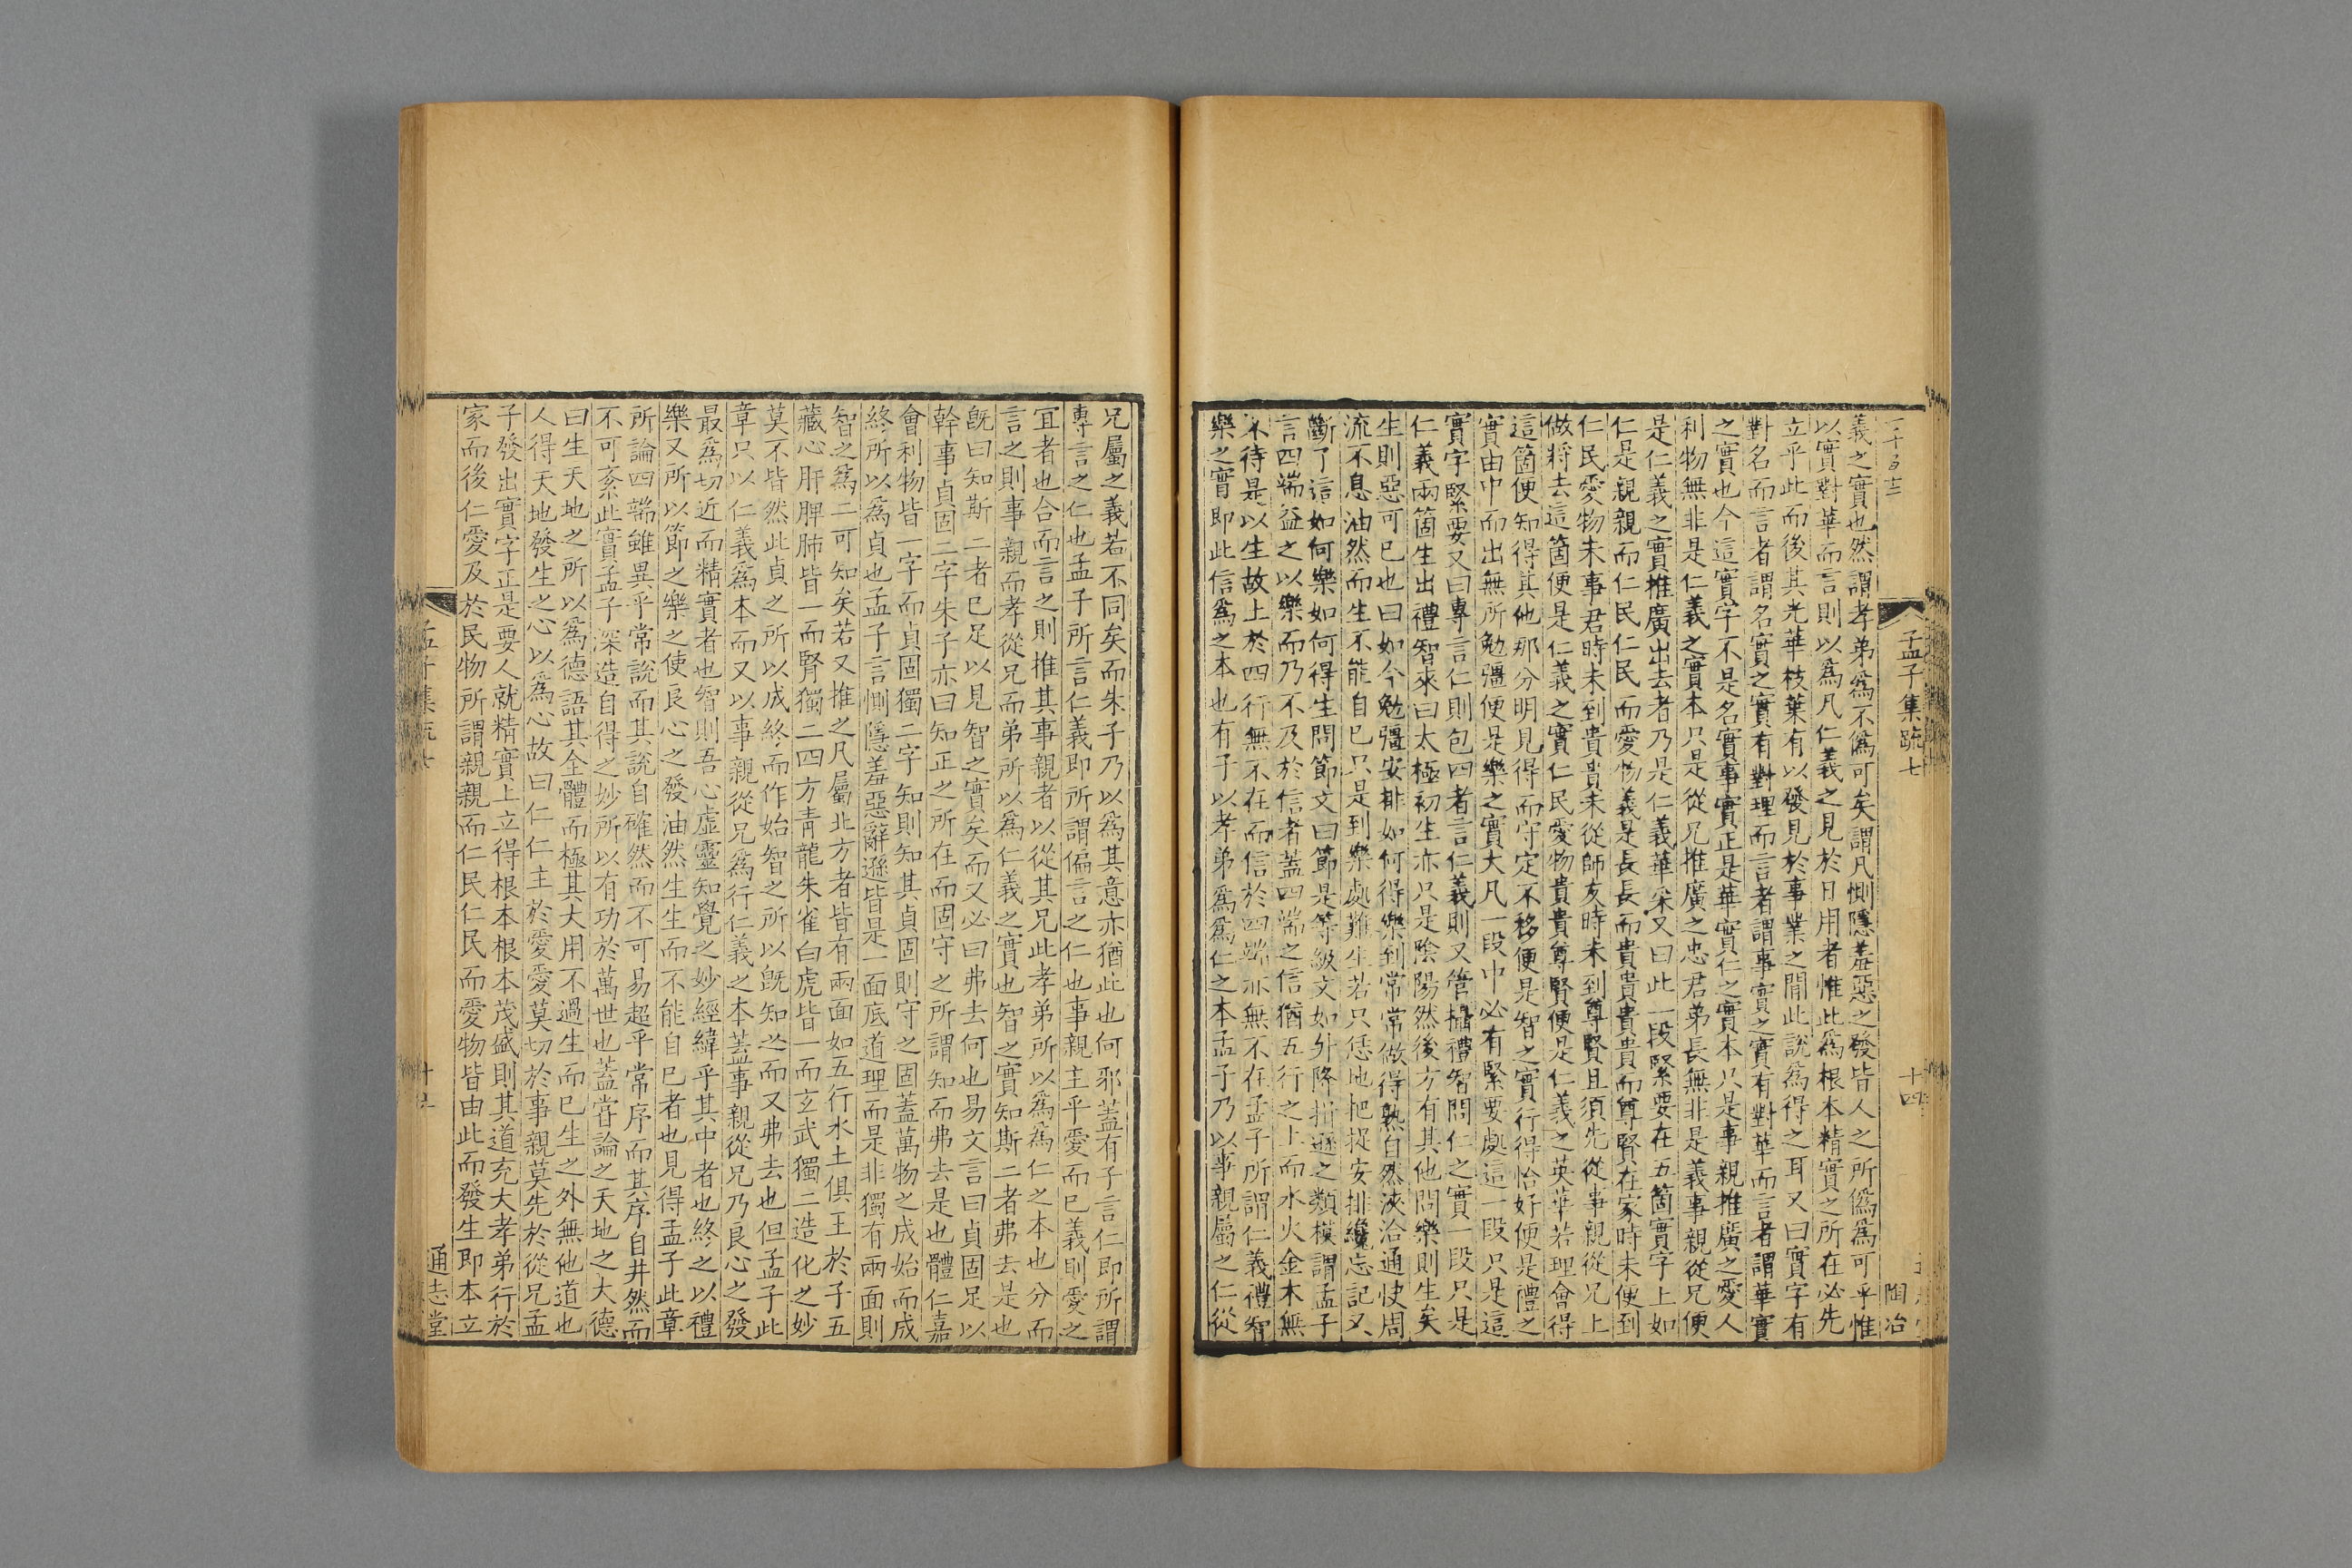 孟子集疏七
十四
陶冶
義之實也然謂孝弟爲不僞可矣謂凡惻隱羞惡之發皆人之所僞爲可乎惟
以實對華而言則以爲凡仁義之見於日用者惟此爲根本精實之所在必先
立乎此而後其光華枝葉有以發見於事業之閒此說爲得之耳又曰實字有
對名而言者謂名實之實有對理而言者謂事實之實有對華而言者謂華實
之實也今這實字不是名實事實正是華實仁之實本只是事親推廣之愛人
利物無非是仁義之實本只是從兄推廣之忠君弟長無非是義事親從兄便
是仁義之實推廣出去者乃是仁義華采又曰此一段緊要在五箇實字上如
仁是親親而仁民仁民而愛物義是長長而貴貴貴貴而尊賢在家時未便到
仁民愛物未事君時未到貴貴未從師友時未到尊賢且須先從事親從兄上
做將去這箇便是仁義之實仁民愛物貴貴尊賢便是仁義之英華若理會得
這箇便知得其他那分明見得而守定不移便是智之實行得恰好便是禮之
實由中而出無所勉彊便是樂之實大凡一段中必有緊要處這一段只是這
實字緊要又曰專言仁則包四者言仁義則又管攝禮智問仁之實一段只是
仁義兩箇生出禮智來曰太極初生亦只是陰陽然後方有其他問樂則生矣
生則惡可已也曰如今勉彊安排如何得樂到常常做得熟自然浹洽通快周
流不息油然而生不能自已只是到樂處難生若只恁地把捉安排纔忘記又
斷了這如何樂如何得生問節文曰節是等級文如升降揖遜之類模謂孟子
言四端益之以樂而乃不及於信者蓋四端之信猶五行之土而水火金木無
不待是以生故土於四行無不在而信於四端亦無不在孟子所謂仁義禮智
樂之實即此信爲之本也有子以孝弟爲爲仁之本孟子乃以事親屬之仁從
兄屬之義若不同矣而朱子乃以爲其意亦猶此也何邪蓋有子言仁即所謂
專言之仁也孟子所言仁義即所謂偏言之仁也事親主乎愛而已義則愛之
宜者也合而言之則推其事親者以從其兄此孝弟所以爲爲仁之本也分而
言之則事親而孝從兄而弟所以爲仁義之實也智之實知斯二者弗去是也
旣曰知斯二者已足以見智之實矣而又必曰弗去何也易文言曰貞固足以
幹事貞固二字朱子亦曰知正之所在而固守之所謂知而弗去是也體仁嘉
會利物皆一字而貞固獨二字知則知其貞固則守之固蓋萬物之成始而成
終所以爲貞也孟子言惻隱羞惡辭遜皆是一面底道理而是非獨有兩面則
智之爲二可知矣若又推之凡屬北方者皆有兩面如五行水土俱王於子五
藏心肝脾肺皆一而腎獨二四方青龍朱雀白虎皆一而玄武獨二造化之妙
莫不皆然此貞之所以成終而作始智之所以旣知之而又弗去也但孟子此
章只以仁義爲本而又以事親從兄爲行仁義之本蓋事親從兄乃良心之發
最爲切近而精實者也智則吾心虛靈知覺之妙經緯乎其中者也終之以禮
樂又所以節之樂之使良心之發油然生生而不能自已者也見得孟子此章
所論四端雖異乎常說而其說自確然而不可易超乎常序而其序自井然而
不可紊此實孟子深造自得之妙所以有功於萬世也蓋嘗論之天地之大德
曰生天地之所以爲德語其全體而極其大用不過生而已生之外無他道也
人得天地發生之心以爲心故曰仁仁主於愛愛莫切於事親莫先於從兄孟
子發出實字正是要人就精實上立得根本根本茂盛則其道充大孝弟行於
家而後仁愛及於民物所謂親親而仁民仁民而愛物皆由此而發生即本立
通志堂